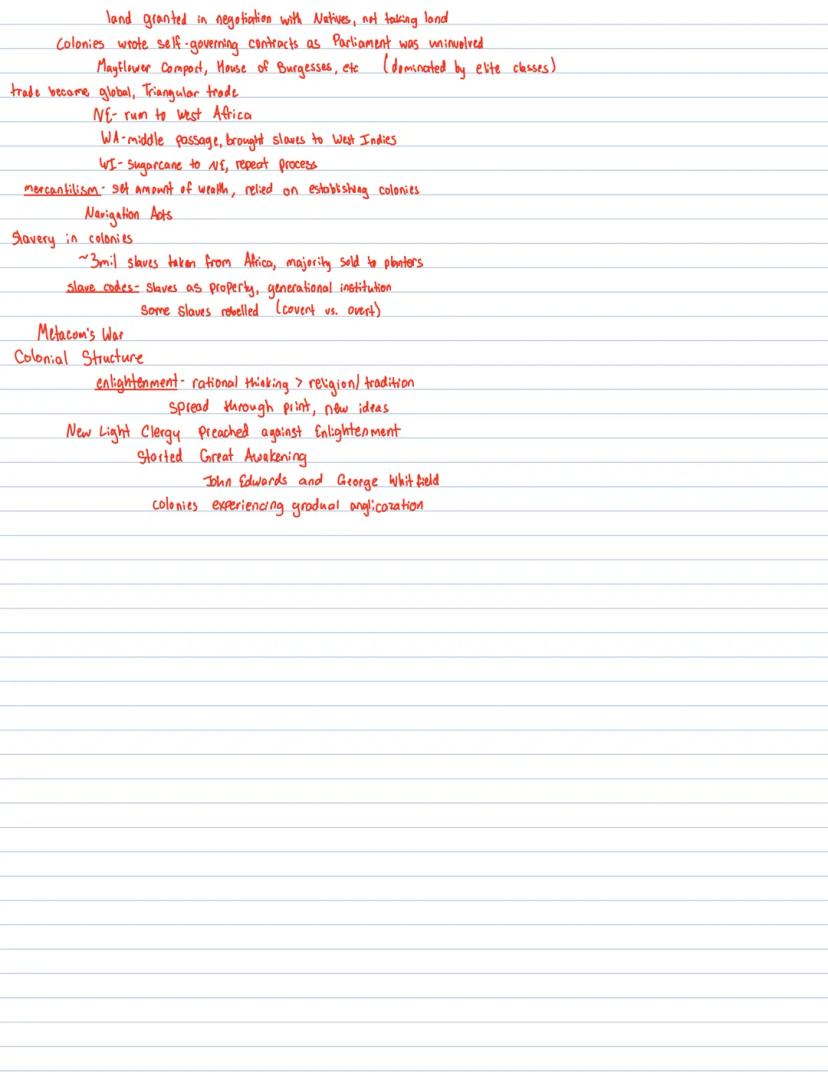 land granted in negotiation with Natives, not taking land
Colonies wrote self-governing contracts as Parliament was uninvolved
Mayflower Compact, House of Burgesses, etc (dominated by elite classes)
trade became global, Triangular trade
NE- rum to West Africa
WA-middle passage, brought slaves to West Indies
WI- sugarcane to NE, repeat process
mercantilism- set amount of wealth, relied on establishing colonies
Navigation Acts
Slavery in colonies
~3mil slaves taken from Africa, majority sold to planters
slave codes- slaves as property, generational institution
some slaves rebelled (covert vs. overt)
Metacom's War
Colonial Structure
enlightenment- rational thinking > religion/tradition
spread through print, new ideas
New Light Clergy preached against Enlightenment
Started Great Awakening
John Edwards and George Whitfield
colonies experiencing gradual anglicazation